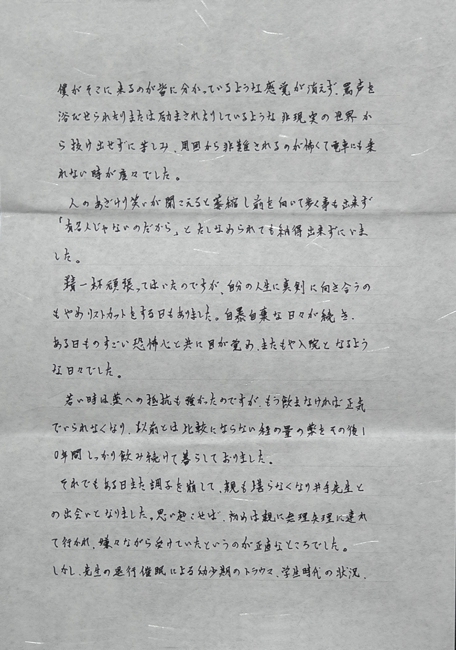 僕がそこに来るのが皆に分かっているような感覚が消えず、罵声を
浴びせられたりまたは励まされたりしているような非現実の世界か
ら抜け出せずに苦しみ、周囲から非難されるのが怖くて電車にも乗
れない時が度々でした。
人のあざけり笑いが聞こえると萎縮し前を向いて歩く事も出来ず
「有名人じゃないのだから」とたしなめられても納得出来ずにいま
した。
精一杯頑張ってはいたのですが、自分の人生に真剣に向き合うの
もやめリストカットをする日もありました。自暴自棄な日々が続き、
ある日ものすごい恐怖心と共に目が覚め、またもや入院となるよう
な日々でした。
若い時は薬への抵抗も強かったのですが、もう飲まなければ正気
でいられなくなり、以前とは比較にならない程の量の薬をその後1
0年間しっかり飲み続けて暮らしておりました。
それでもある日また調子を崩して、親も帰らなくなり井手先生と
の出会いとなりました。思い起こせば、初めは親に無理矢理に連れ
て行かれ、嫌々ながら受けていたというのが正直なところでした。
しかし、先生の退行催眠による幼少期のトラウマ、学生時代の状況、